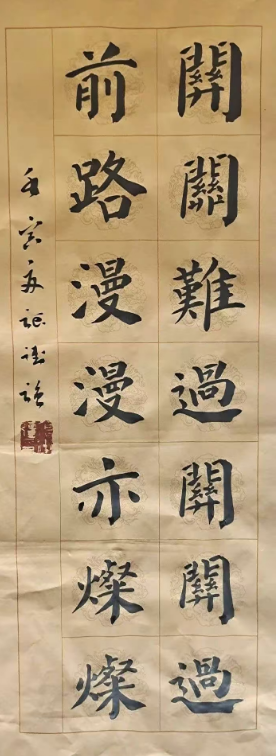 關關難過關關過
前路漫漫亦燦燦
壬寅